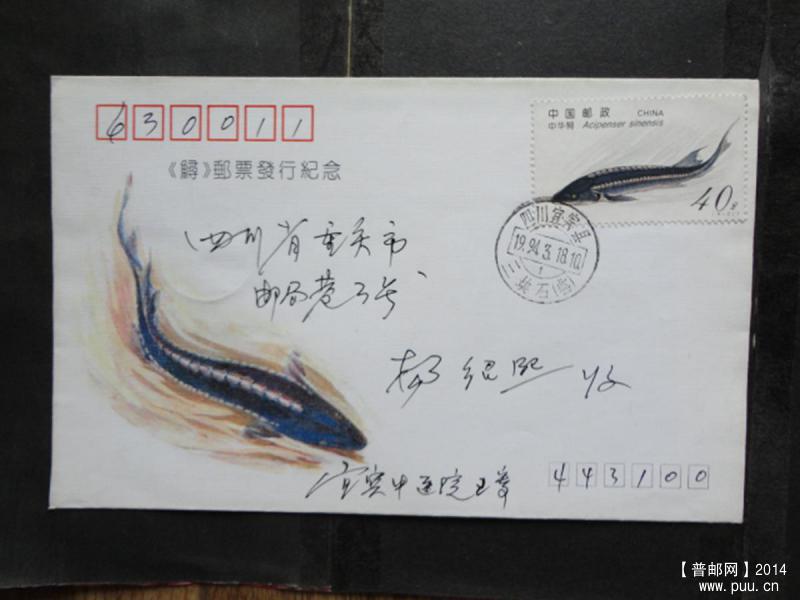 630011
《鲟》郵票發行紀念
中国邮政 CHINA
中华鲟 Acipenser sinensis
40分
四川宜宾县
19.94.3.18.10
1
三块石(临)
四川省重庆市
邮局巷3号
杨绍熙 收
宜宾中医院
443100
【普邮网】2014
www.puu.cn